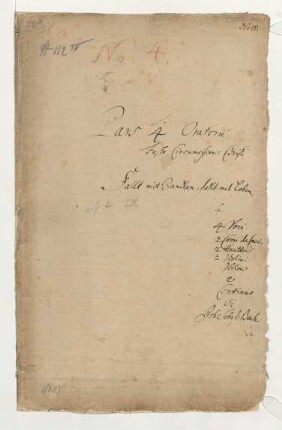 No 4.
Pars 4 Oratorii
Festo Circumcisionis Christi
Fallt mit Dancken, fallt mit Loben
à
4 Voci
2 Corni da Caccia
2 Hautbois
2 Violini
Viola
e
Continuo
di
Joh: Seb: Bach